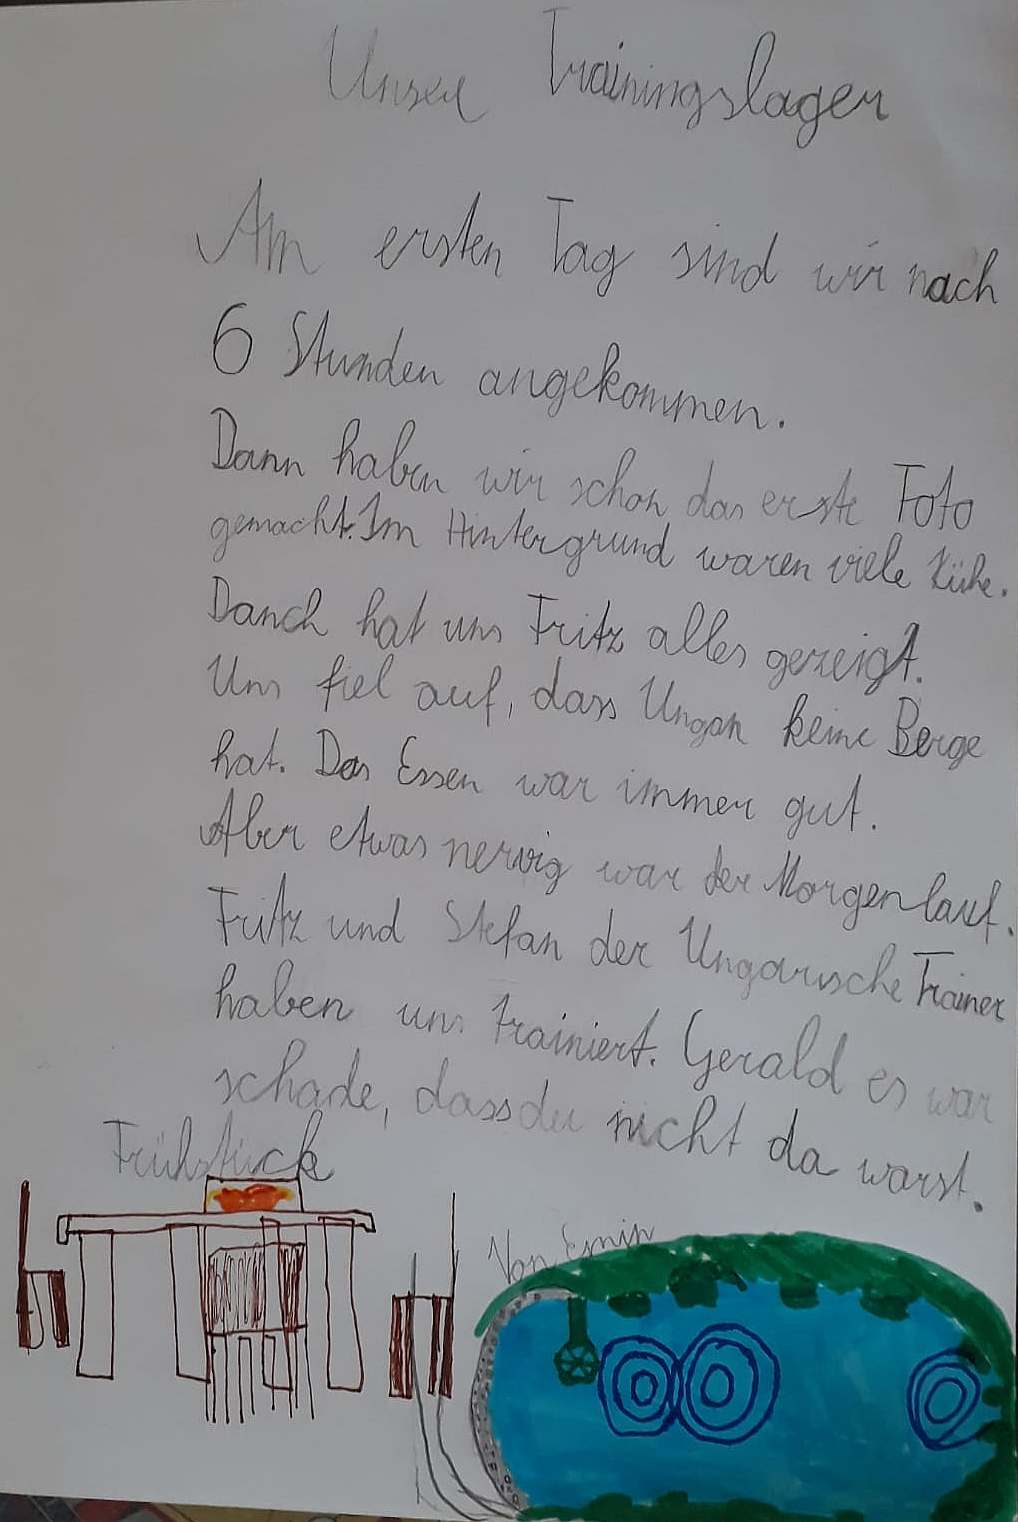 Unser Trainingslager
Am ersten Tag sind wir nach
6 Stunden angekommen.
Dann haben wir schon das erste Foto
gemacht. Im Hintergrund waren viele Kühe.
Danch hat uns Fritz alles gezeigt.
Uns fiel auf, dass Ungan keine Berge
hat. Das Essen war immer gut.
Aber etwas nervig war der Morgenlauf.
Fritz und Stefan der Ungarische Trainer
haben uns trainiert. Gerald es war
schade, dass du nicht da warst.
Frühstück
Von Emin